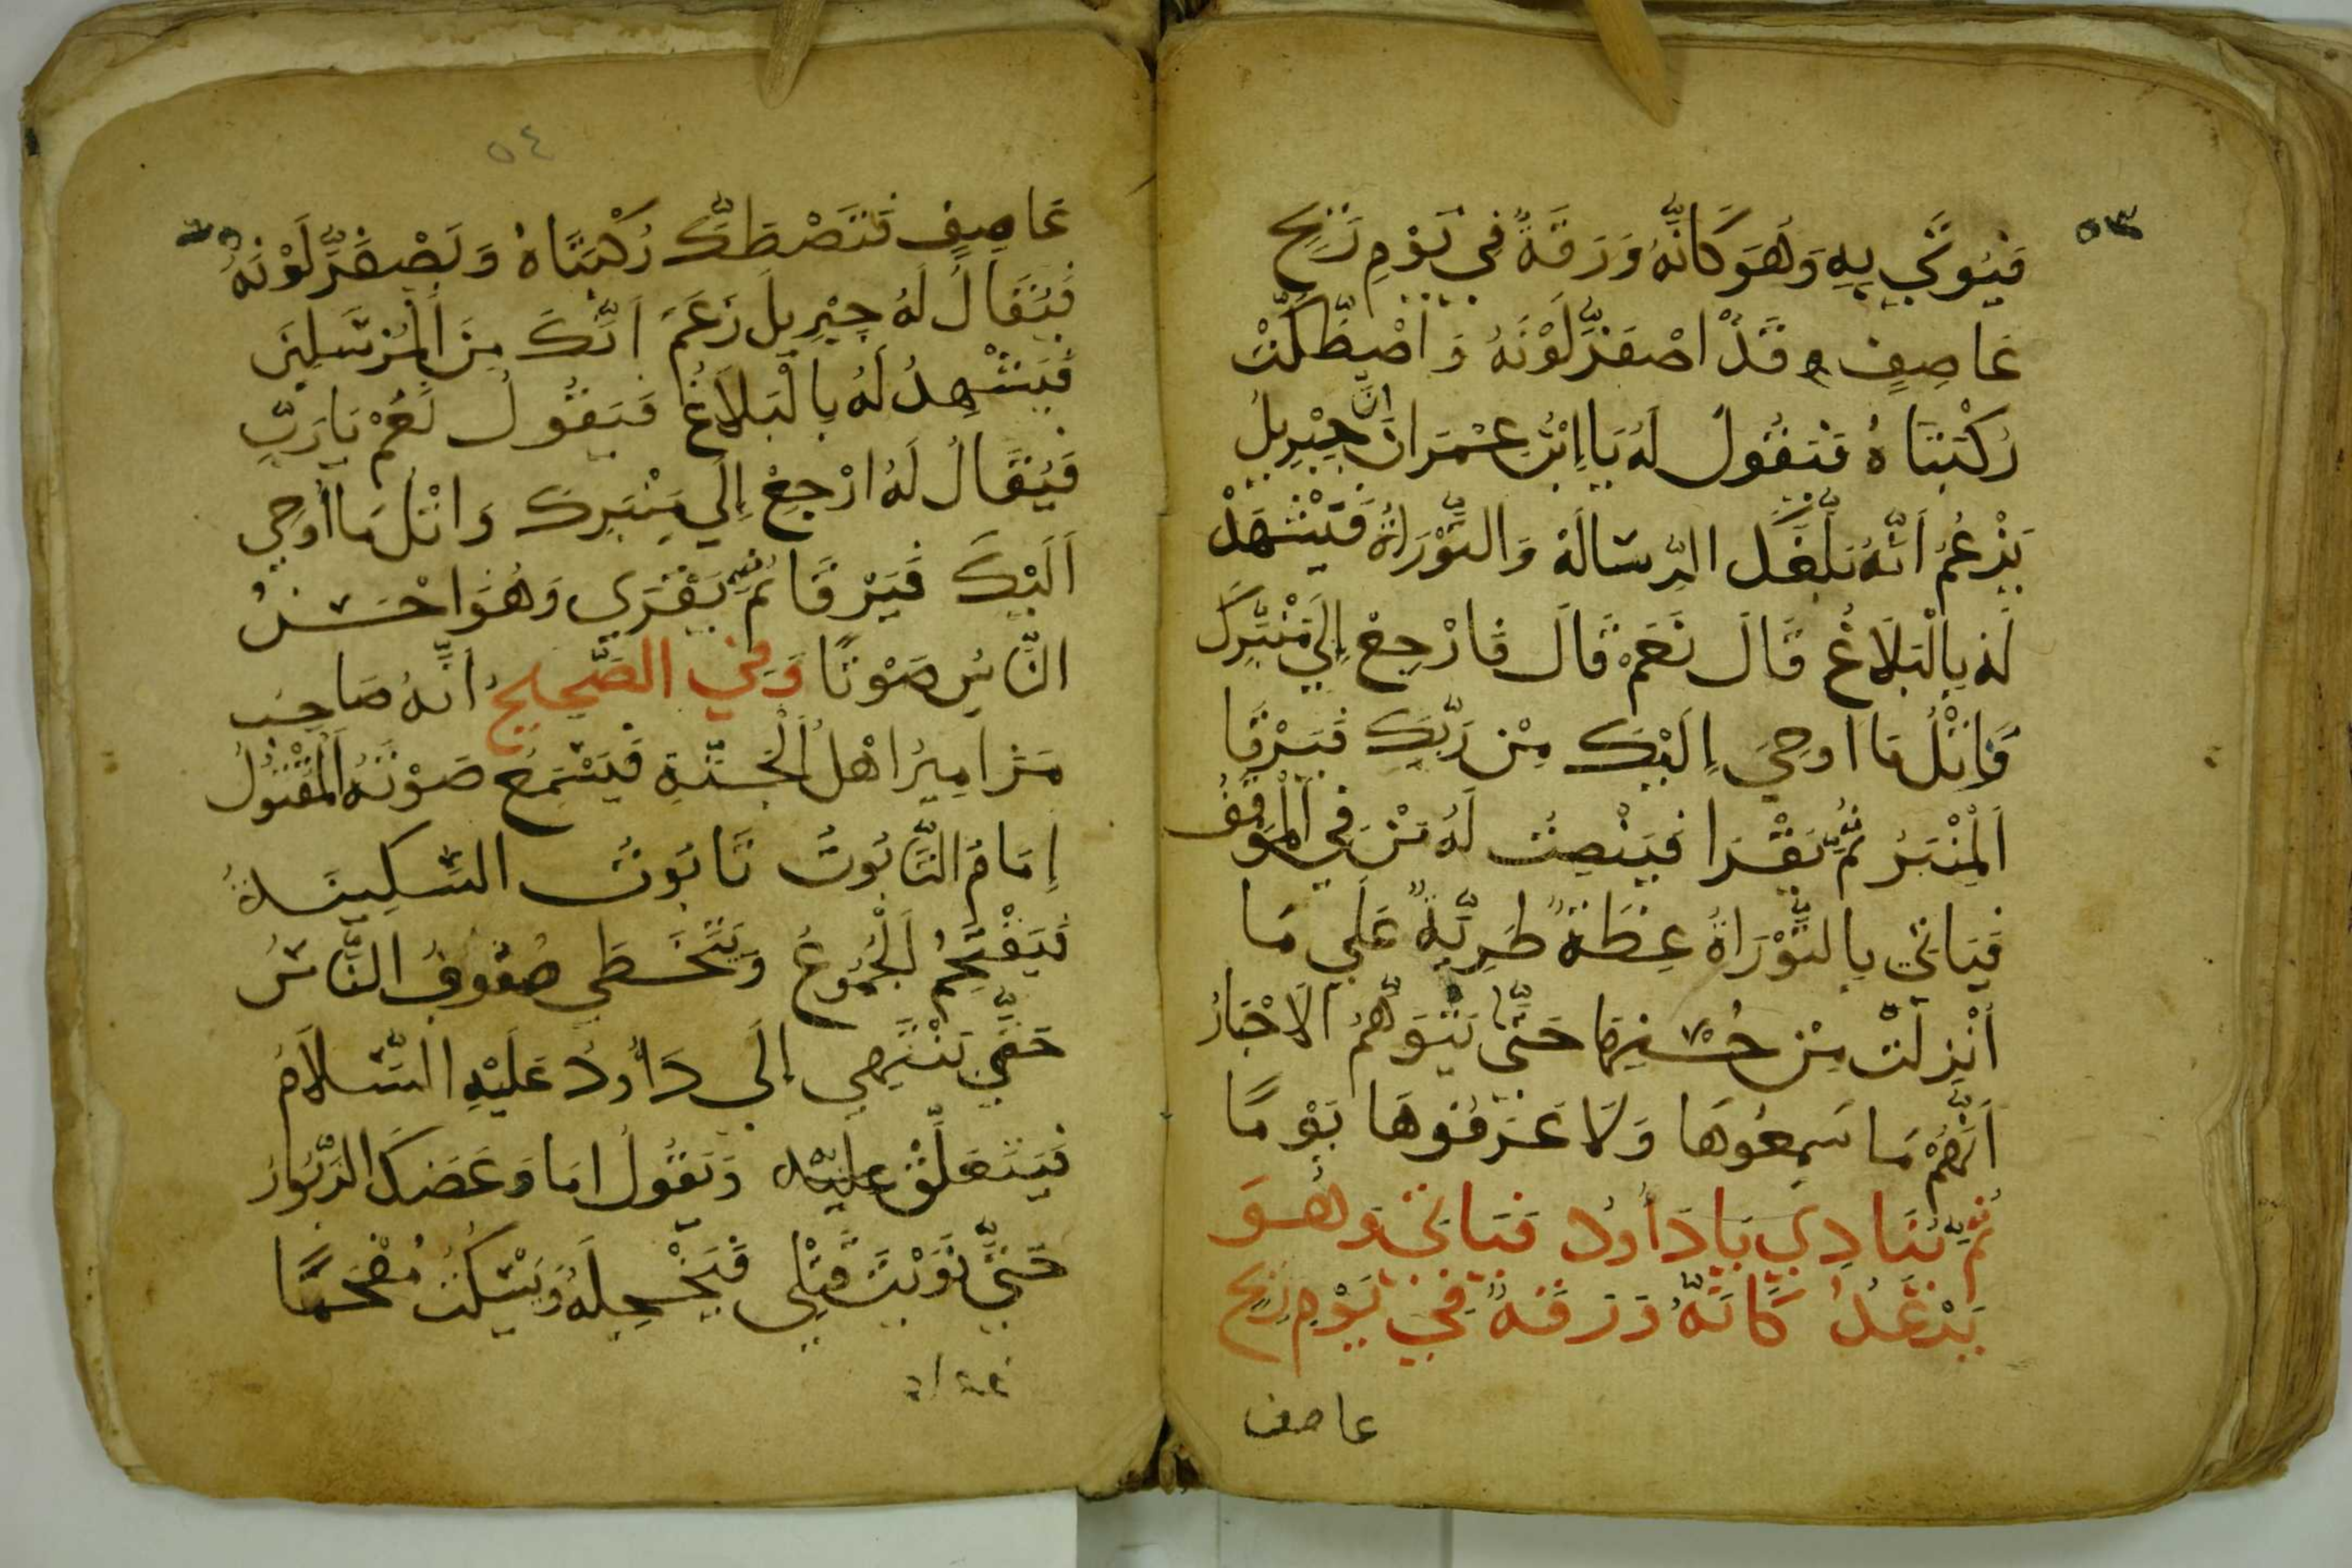 ٥٣
فَيُوتَي بِهِ وَهُوَ كَانَّهُ وَرَقَةً فِي يَوْمِ رَيِحٍ
عَاصِفٍ وقَدْ اصْفَرَّ لَوْنَهُ وَ اصْطَكَّتْ
رُكْبَتَاهُ فَيَقُولُ لَهُ يَا ابْنَ عِمْرَانَ انَّ جِبْرِيلُ
يَزْعُمُ اَنَّهُ بَلَّغَكَ الرِّسَالَهْ وَالتَّوْرَاةُ فَيَشْهَدْ
لَهُ بِالْبَلَاغُ قَالَ نَعَمْ قَالَ فَارْجِعْ اِلَي مَنْبَرِكَ
وَاتْلُ مَا اوحِيَ اِلَيْكَ مِنْ رَبِّكَ فَيَرْقَا
اَلْمِنْبَرُ ثُمَّ يَقْرَا فَيَنْصِتُ لَهُ مَنْ فِي الْمَوْقِفُ
فَيَاتِي بِالتَّوْرَاةُ غِضَةً طَرِيَّةً عَلَي مَا
اُنْزِلَتْ مِنْ حُسْنِهَا حَتَّي يَتَوَهَّمُ الاَحْبَارُ
اَنَّهُمْ مَا سَمِعُوهَا وَلَا عَرَفُوهَا يَوْمًا
ثُمَّ يُنَادِي يَا دَاُودُ فَيَاتِي وَهُوَ
يَرْعَدُ كَانَّهُ وَرَقَةً فِي يَوْمِ رِيحٍ
عاصف
٥٤
عَاصِفٍ فَتَصْطَكُّ رُكْبَتَاهُ وَيَصْفَرُّ لَوْنَهُ
فَيُقَالُ لَهُ جِبْرِيلَ زَعَمَ اَنَّكَ مِنَ الْمُرْسَلِينَ
فَيَشْهِدُ لَهُ بِالْبَلَاغُ فَيَقُولُ نَعَمْ يَا رَبِّ
فَيُقَالُ لَهُ ارْجِعْ اِلَي مِنْبَرِكَ وَاتْلُ مَا اُوحِي
اَلَيْكَ فَيَرْقَا ثُمَّ يَقْرَي وَهُوَ احْسَنُ
النَّاسِ صَوْتًا وَفِي الصَّحِيحِ اَنَّهُ صَاحِبُ
مَزَامِيرُ اهْلُ الْجَنَّةِ فَيَسْمَعُ صَوْتَهُ الْمَقْتُولُ
اِمَامُ التَّابُوتُ تَابُوتُ السَّكِينَةُ
فَيَقْتَحِمُ اَلْجُمُوعُ وَيَتَخَطَي صُفُوفُ النَّاسُ
حَتَّي يَنْتَهِي اِلَي دَاُودُ عَلَيْهِ السَّلَامُ
فَيَتَعَلَّقْ عَلَيْه وَيَقُولُ امَا وَعَضَكَ الزَّبُورُ
حَتَّي نَوَيْتَ قَتْلِي فَيَخْجِلَهُ وَيَسْكُتُ مُفْحَمًا